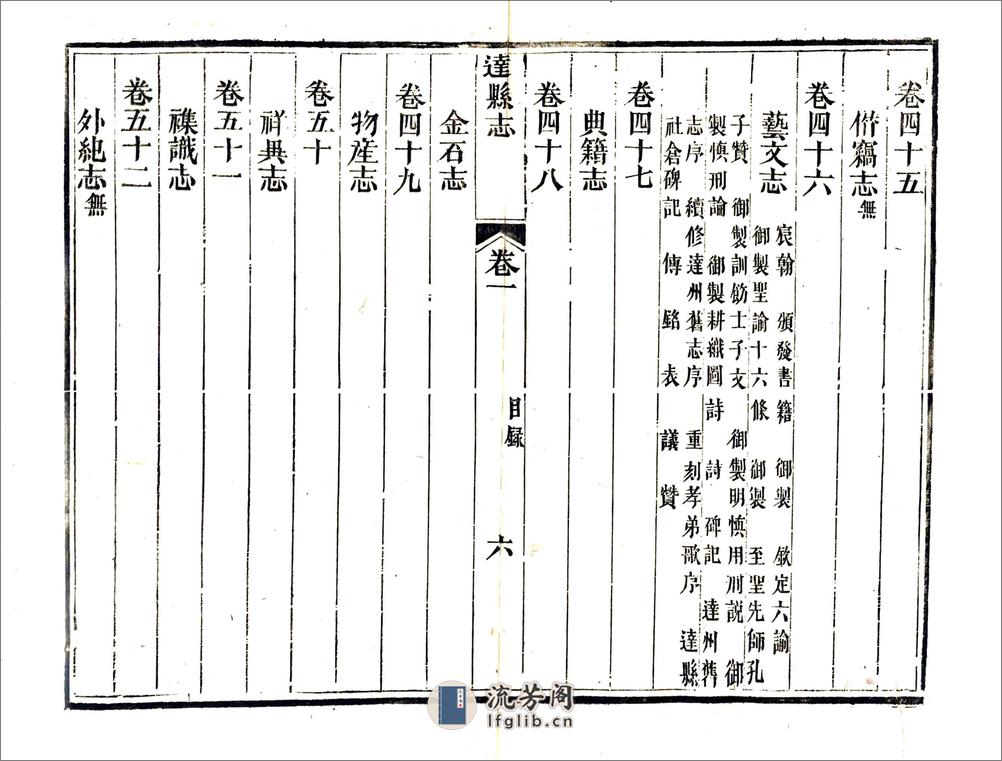 卷四十五
僣竊志無
卷四十六
藝文志
宸翰 頒發書籍 御製 欽定六諭
御製聖諭十六條 御製 至聖先師孔
子贊 御製訓飭士子文 御製明慎用刑說 御
製慎刑論 御製耕織圖詩 詩 碑記 達州舊
志序 續修達州舊志序 重刻孝弟歌序 達縣
社倉碑記 傳 銘 表 議 贊
卷四十七
典籍志
卷四十八
達縣志 卷一 目録 六
金石志
卷四十九
物産志
卷五十
祥異志
卷五十一
襍識志
卷五十二
外紀志無
流芳阁
lfglib.cn